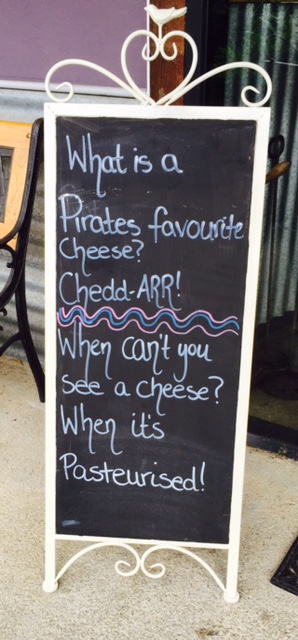 What is a
Pirates favourite
Cheese?
Chedd-ARR!
When can't you
see a cheese?
When it's
Pasteurised!